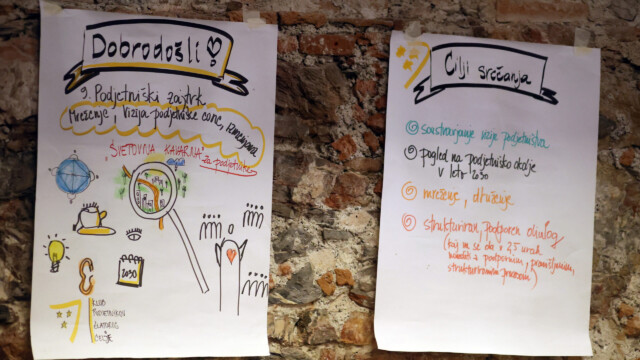 Dobrodošli!
9. Podjetniški zajtrk
Mreženje, Vizija podjetniške cone,
"SVETOVNA KAVARNA" za podjetnike
2030
KLUB
PODJETNIKOV
ZLATOROG
Cilji srečanja
soustvarjanje vizije podjetništva
pogled na podjetniško okolje
v letu 2030
mreženje, druženje
strukturiran, podporen dialog
(kaj se da v 2,5 urah
s podpornim,
strukturiranim procesom)